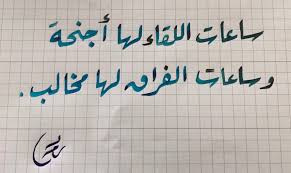 ساعات اللقاء لها أجنحة
وساعات الفراق لها مخالب .